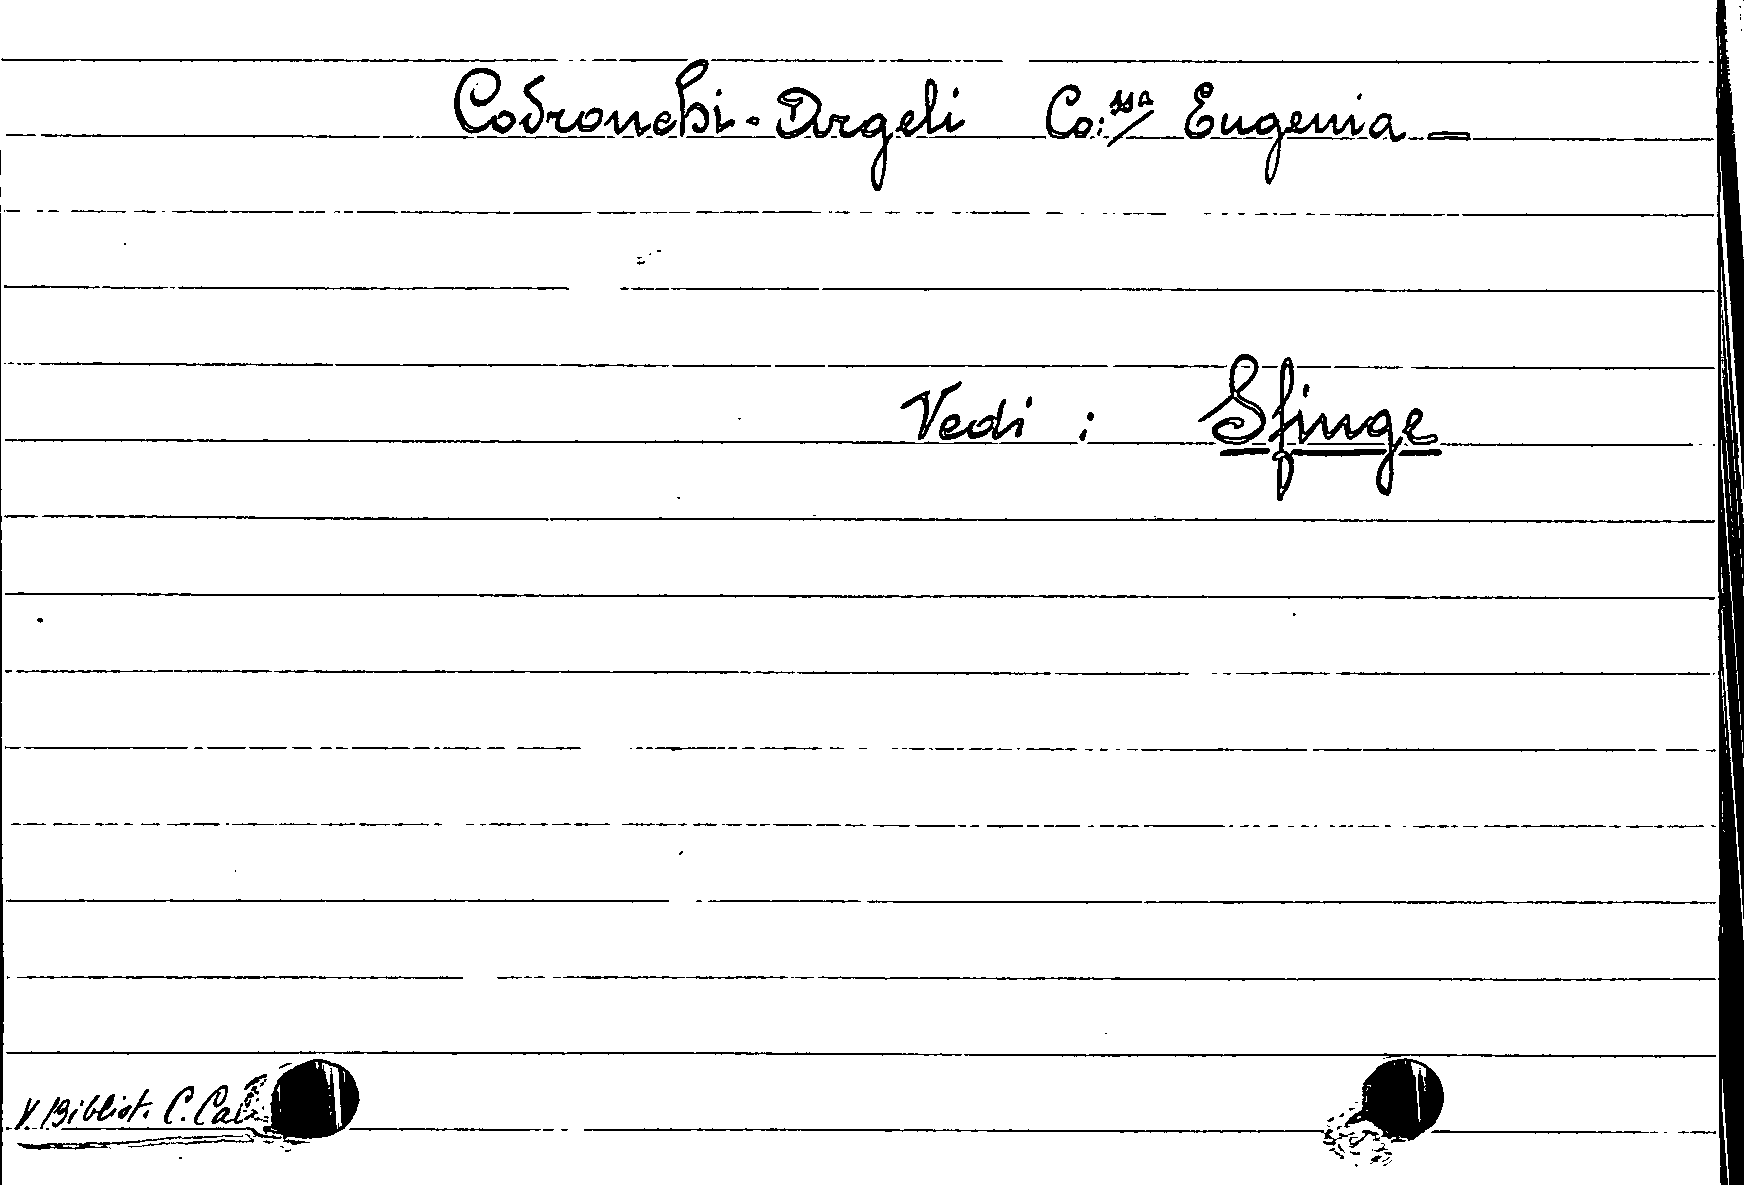 Codronchi-Argeli Co:ssa/ Eugenia —
Vedi : Sfinge
V. Bibliot. C.